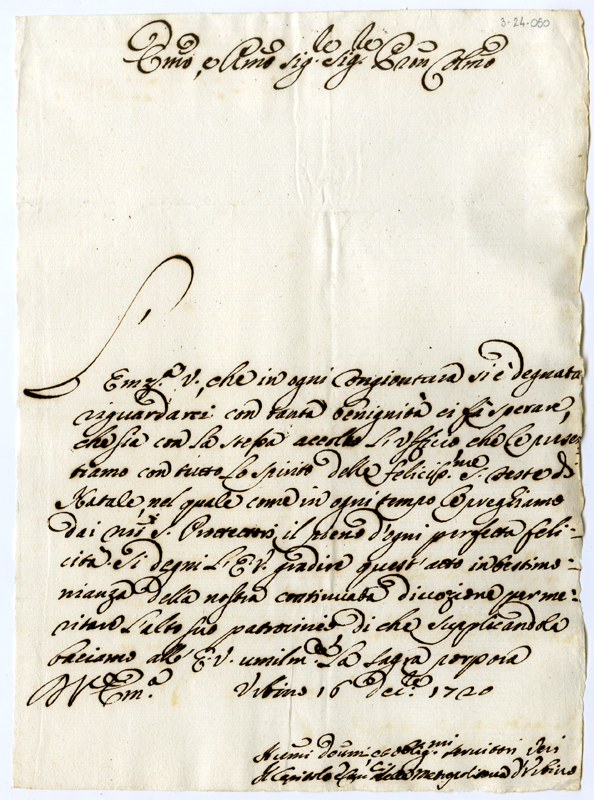 3-24-050
Emo, e Rmo Sig.r Sig.r Pron Colmo
L'
Emza. V., che in ogni congiontura si è degnata
riguardarci con tanta benignità ci fà sperare,
che sia con la stessa accolto l'ufficio che le presen=
tiamo con tutto lo spirito delle felicissme S. Feste di
Natale, nel quale come in ogni tempo le preghiamo
dai nri S. Protettori, il pieno d'ogni perfetta feli=
cità. Si degni l'E.V. gradire quest'atto in testimo=
nianza della nostra continuata divozione per me=
ritare l'alto suo patrocinio di che supplicandola
baciamo all'E.V. umilmte. la sagra porpora
Di V. Em.a Urbino 16 Decre. 1720
Humi Devmi et obbligmi servitori veri
Il Capitolo e Can.ci della Metropolitana d'Urbino